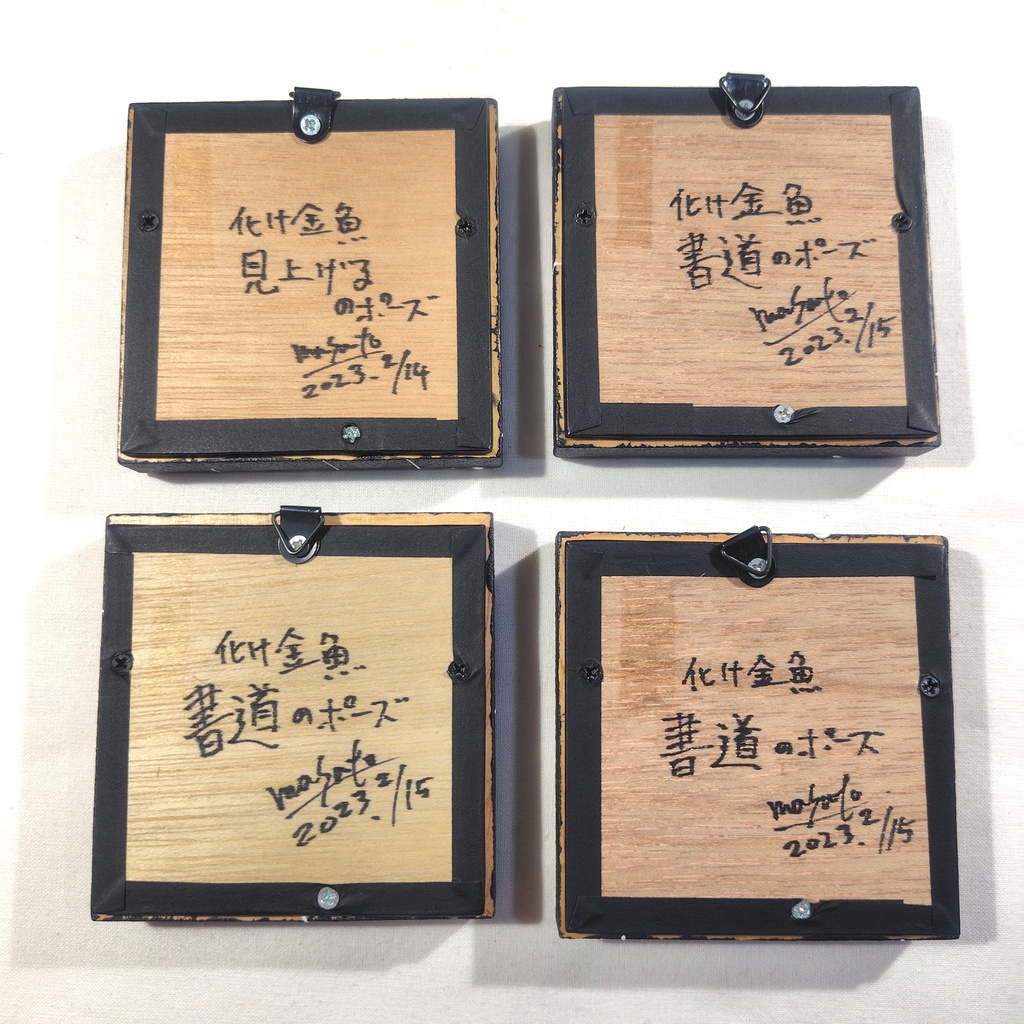 化け金魚
見上げる
のポーズ
masato
2023.2/14
化け金魚
書道のポーズ
masato
2023.2/15
化け金魚
書道のポーズ
masato
2023.2/15
化け金魚
書道のポーズ
masato
2023.2/15